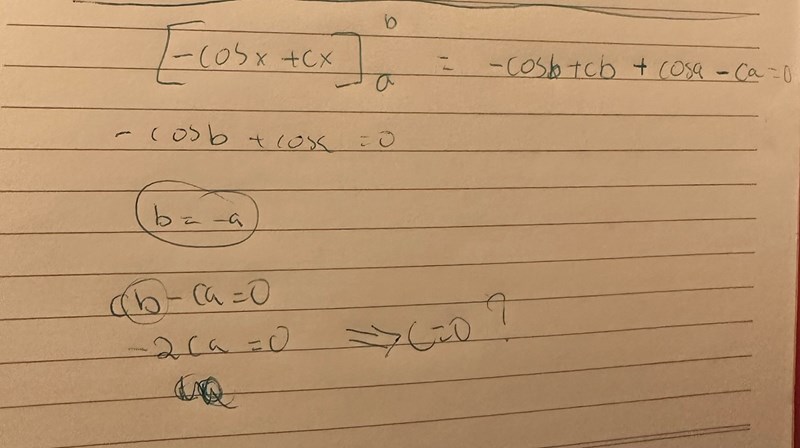 [-cosx + cx]ᵇₐ = -cosb + cb + cosa - ca = 0
- cosb + cosa = 0
b = -a
cb - ca = 0
-2ca = 0 ⇒ c=0 ?